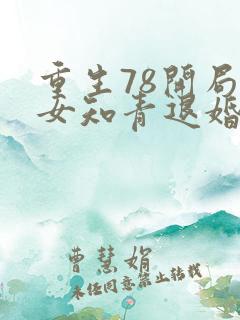 重生78开局
女知青退婚
曹慧娟
未经同意禁止转载